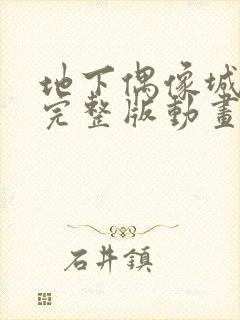 地下偶像城
完整版動畫
石井鎮